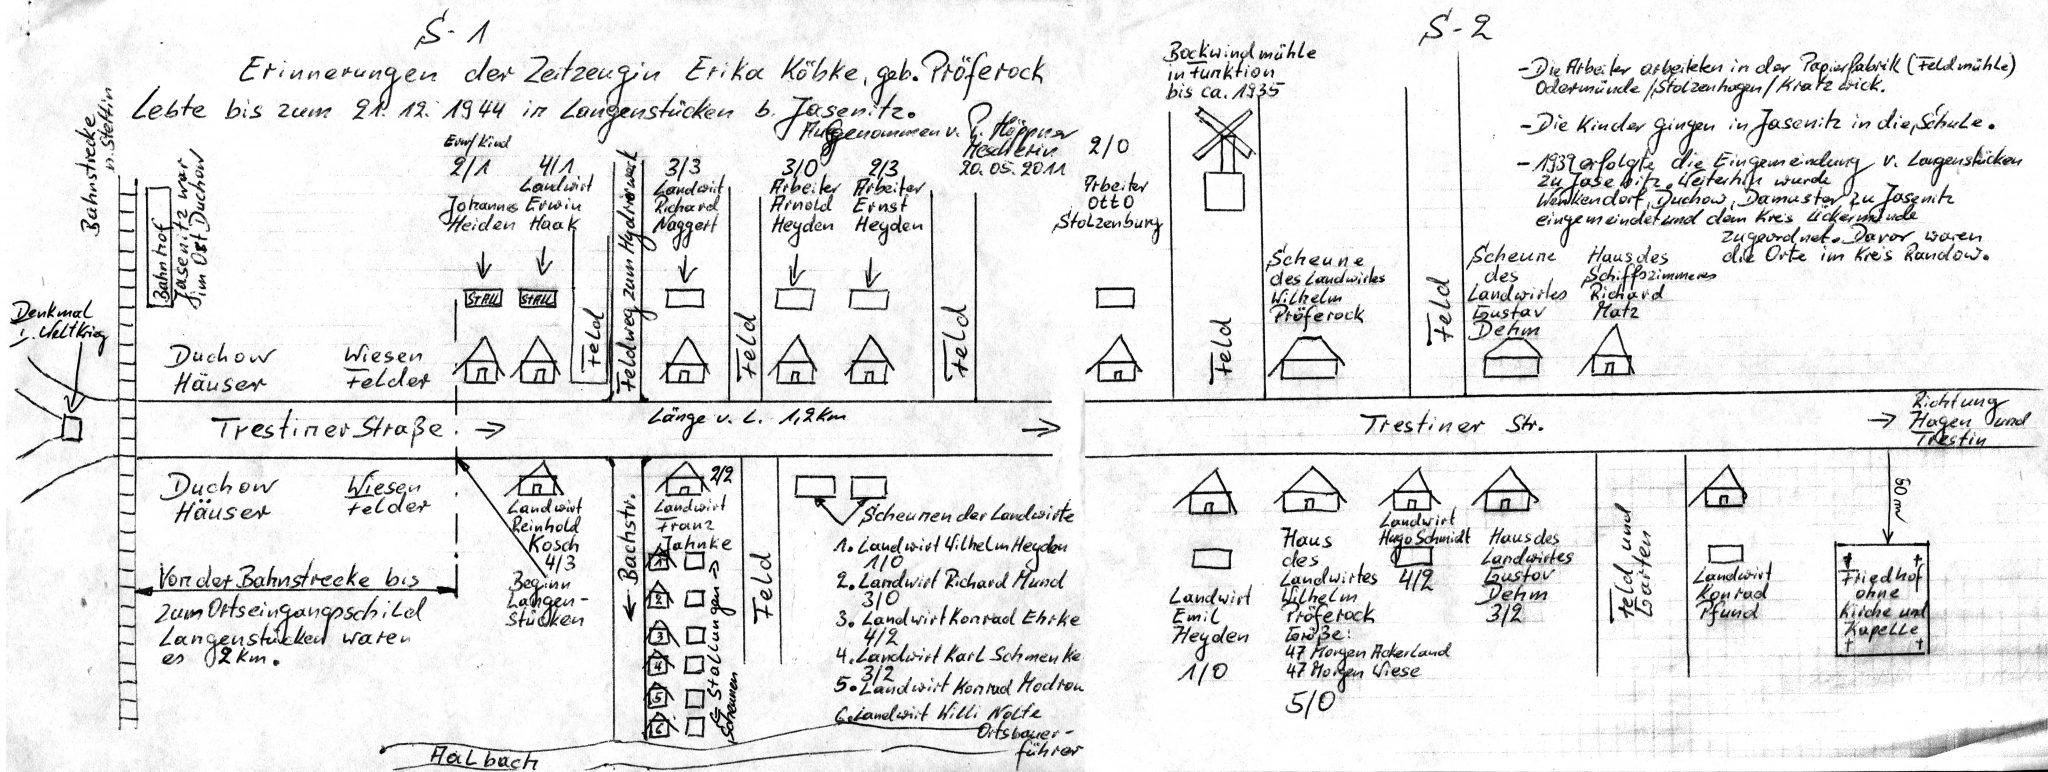 S-1
Erinnerungen der Zeitzeugin Erika Köbke, geb. Pröferock
Lebte bis zum 21.12.1944 in Langenstücken b. Jasenitz.
Aufgenommen v. P. Höppner
Mescherin
20.05.2011
Bahnstrecke
n. Stettin
Bahnhof
Jasenitz war
im Ort Duchow
Denkmal
1. Weltkrieg
Erw/Kind
2/1
Johannes
Heiden
STALL
4/1
Landwirt
Erwin
Haak
STALL
Feld
Feldweg zum Hydrierwerk
3/3
Landwirt
Richard
Naggert
Feld
3/0
Arbeiter
Arnold
Heyden
2/3
Arbeiter
Ernst
Heyden
Feld
Duchow
Häuser
Wiesen
Felder
Trestiner Straße
Länge v. L. 1,2 km
Duchow
Häuser
Wiesen
Felder
Von der Bahnstrecke bis
zum Ortseingangsschild
Langenstücken waren
es 2 km.
Landwirt
Reinhold
Kosch
4/3
Beginn
Langen-
stücken
Bachstr.
2/2
Landwirt
Franz
Jahnke
1
2
3
4
5
6
= Stallungen
Scheunen
Feld
Scheunen der Landwirte
1. Landwirt Wilhelm Heyden
1/0
2. Landwirt Richard Mund
3/0
3. Landwirt Konrad Ehrke
4/2
4. Landwirt Karl Schmenke
3/2
5. Landwirt Konrad Modrow
6. Landwirt Willi Nolte
Ortsbauer-
führer
Aalbach
S-2
2/0
Arbeiter
Otto
Stolzenburg
Bockwindmühle
in Funktion
bis ca. 1935
Feld
Scheune
des Landwirtes
Wilhelm
Pröferock
Feld
Scheune
des
Landwirtes
Gustav
Dehm
Haus des
Schiffszimmerers
Richard
Matz
- Die Arbeiter arbeiteten in der Papierfabrik (Feldmühle)
Odermünde/Stolzenhagen/Kratzwick.
- Die Kinder gingen in Jasenitz in die Schule.
- 1939 erfolgte die Eingemeindung v. Langenstücken
zu Jasenitz. Weiterhin wurde
Wenkendorf, Duchow, Damuster zu Jasenitz
eingemeindet und dem Kreis Ückermünde
zugeordnet. Davor waren
die Orte im Kreis Randow.
Trestiner Str.
Richtung
Hagen und
Trestin
Landwirt
Emil
Heyden
1/0
Haus
des
Landwirtes
Wilhelm
Pröferock
Größe:
47 Morgen Ackerland
47 Morgen Wiese
5/0
Landwirt
Hugo Schmidt
4/2
Haus des
Landwirtes
Gustav
Dehm
3/2
Feld und
Garten
Landwirt
Konrad
Pfund
50 m
Friedhof
ohne
Kirche und
Kapelle